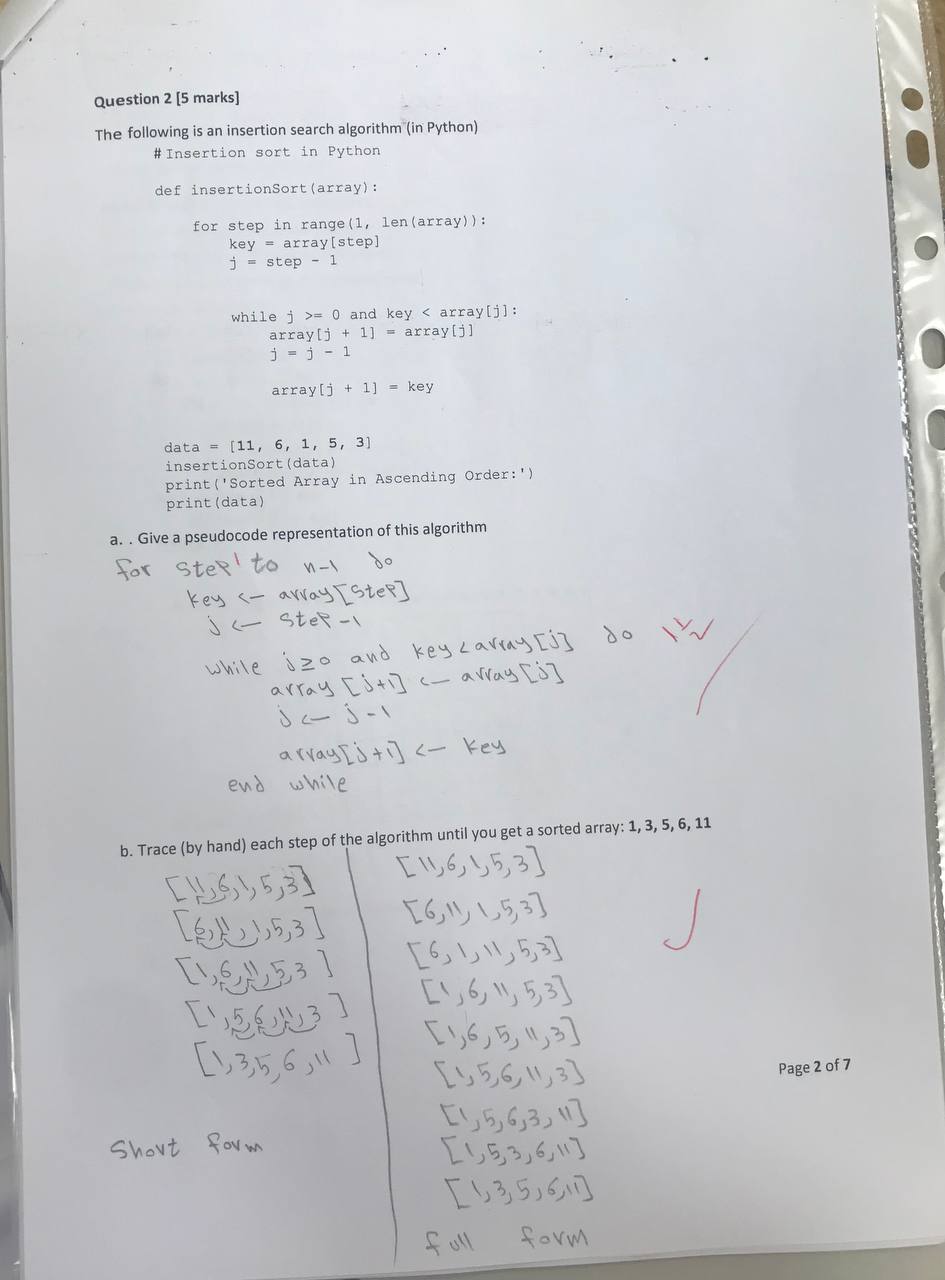 Question 2 [5 marks]
The following is an insertion search algorithm (in Python)
# Insertion sort in Python
def insertionSort(array):
for step in range(1, len(array)):
key = array[step]
j = step - 1
while j >= 0 and key < array[j]:
array[j + 1] = array[j]
j = j - 1
array[j + 1] = key
data = [11, 6, 1, 5, 3]
insertionSort(data)
print('Sorted Array in Ascending Order:')
print(data)
a. . Give a pseudocode representation of this algorithm
for step 1 to n-1 do
key <- array[step]
j <- step-1
while j≥0 and key<array[j] do
array [j+1] <- array[j]
j <- j-1
array[j+1] <- key
end while
b. Trace (by hand) each step of the algorithm until you get a sorted array: 1, 3, 5, 6, 11
[11,6,1,5,3]
[6,11,1,5,3]
[1,6,11,5,3]
[1,5,6,11,3]
[1,3,5,6,11]
Short form
[11,6,1,5,3]
[6,11,1,5,3]
[6,1,11,5,3]
[1,6,11,5,3]
[1,6,5,11,3]
[1,5,6,11,3]
[1,5,6,3,11]
[1,5,3,6,11]
[1,3,5,6,11]
full form
Page 2 of 7